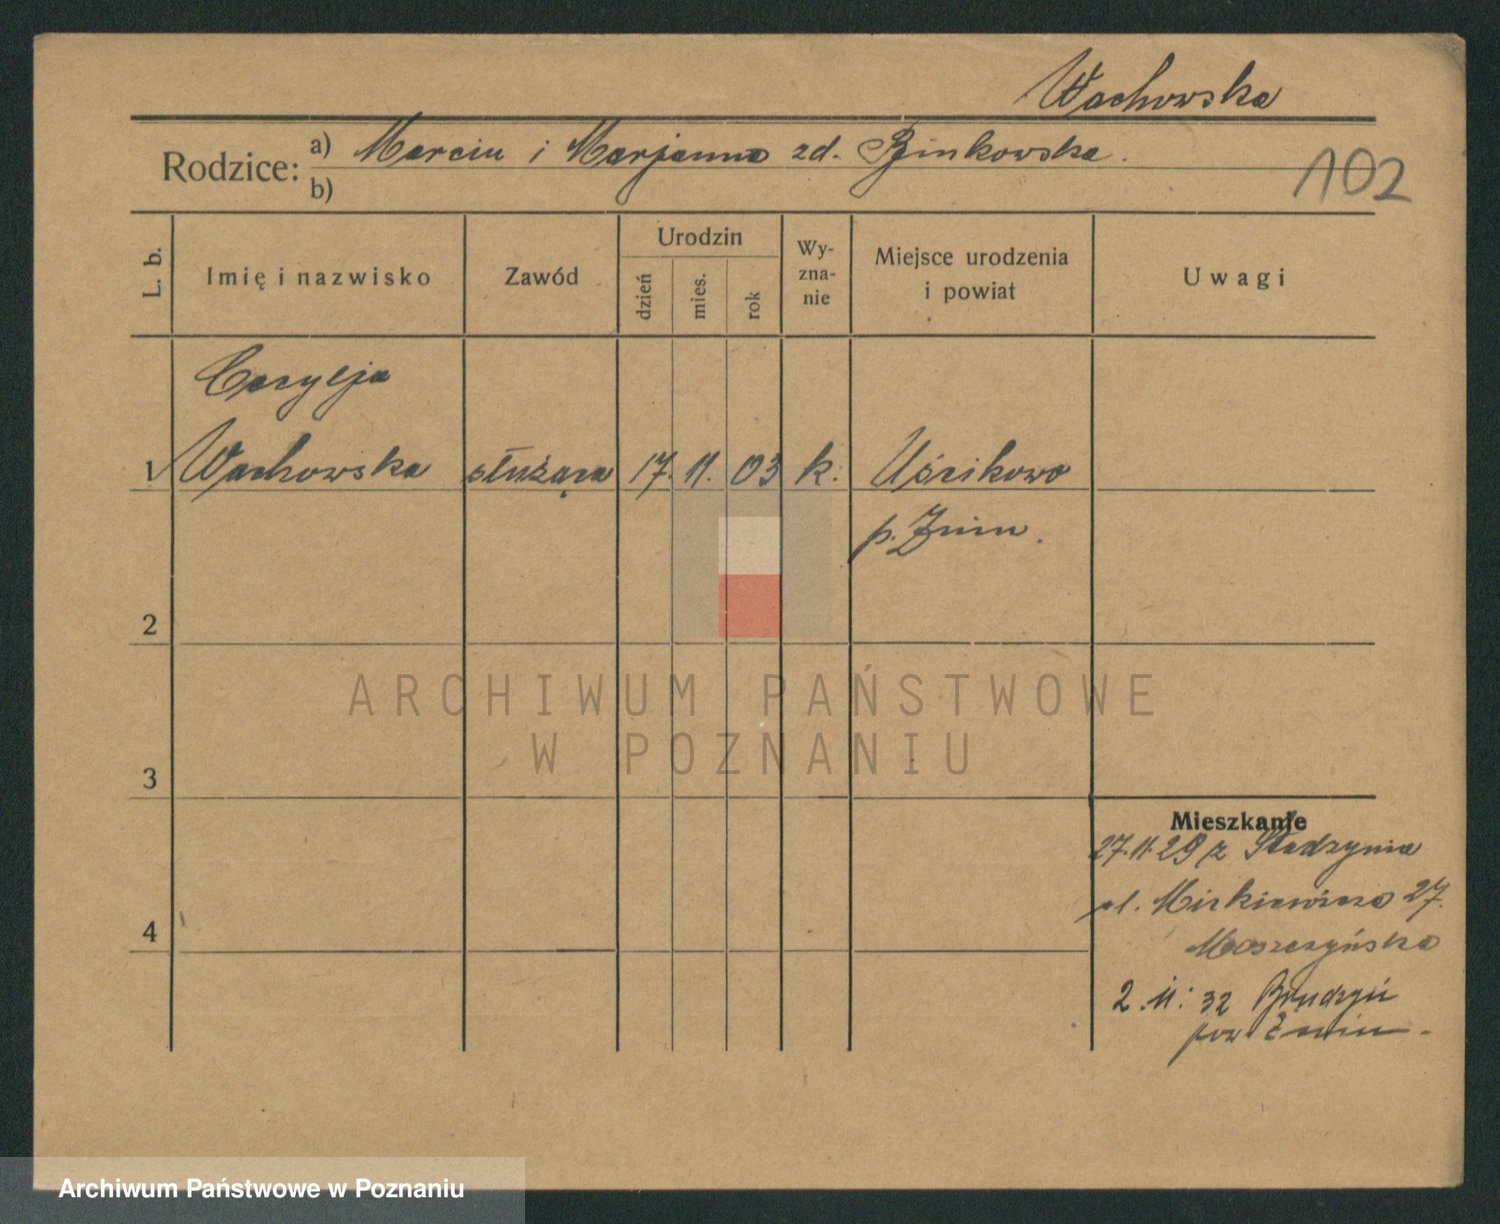 Wachowska
Rodzice: a) Marcin i Marjanna zd. Binkowska.
b)
102
L. b.
Imię i nazwisko
Zawód
Urodzin
dzień
mies.
rok
Wy-
zna-
nie
Miejsce urodzenia
i powiat
Uwagi
Cecylja
1 Wachowska służąca 17. 11. 03 k. Uścikowo
p. Żnin.
2
3
4
Mieszkanie
27.11.29 z
pl. 27.
Moszczyńska
2.11.32 Brudzyń
pow Żnin.
ARCHIWUM PAŃSTWOWE
W POZNANIU
Archiwum Państwowe w Poznaniu